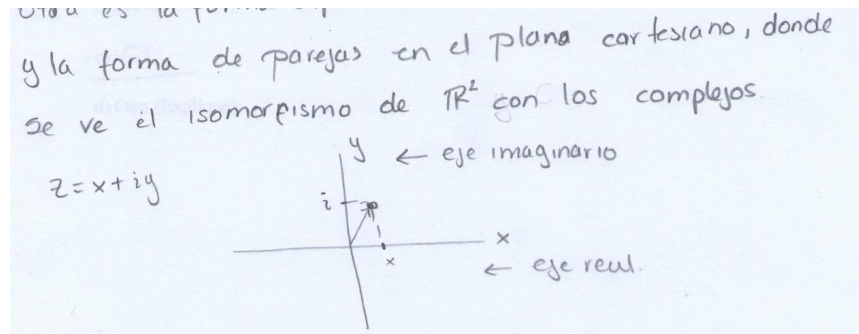 y la forma de parejas en el plana cartesiano, donde
se ve el isomorfismo de ℝ² con los complejos.
z = x + iy
y ← eje imaginario
i
x
x
← eje real.